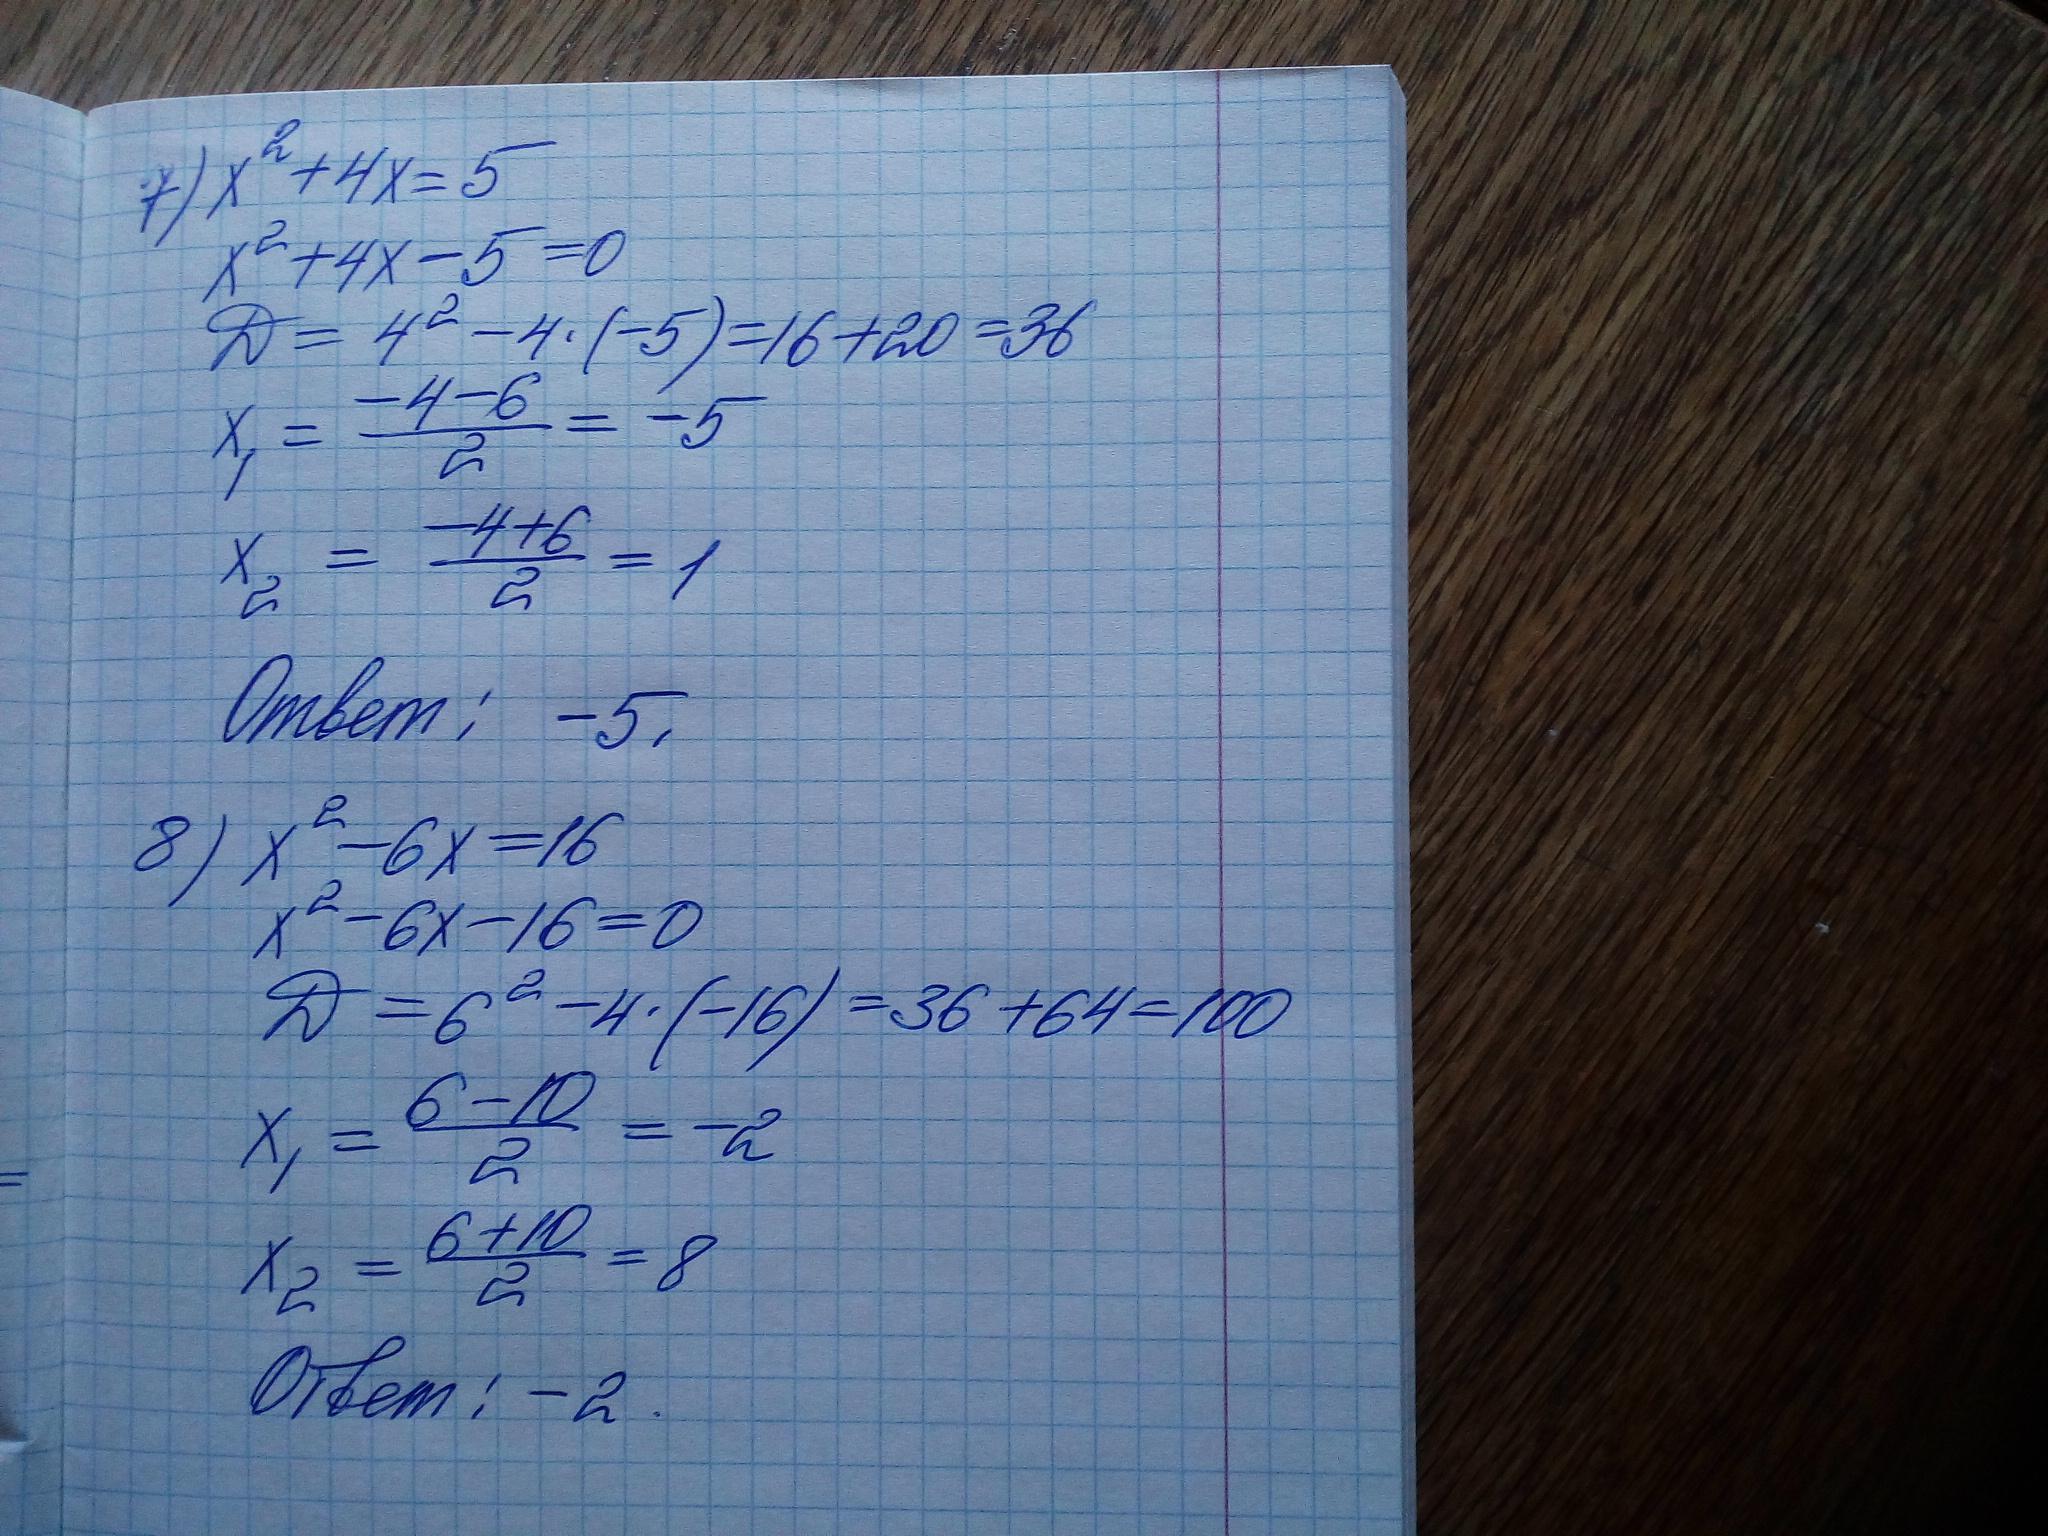 7) x² + 4x = 5
x² + 4x - 5 = 0
D = 4² - 4·(-5) = 16 + 20 = 36
x₁ = (-4-6)/2 = -5
x₂ = (-4+6)/2 = 1
Ответ: -5.
8) x² - 6x = 16
x² - 6x - 16 = 0
D = 6² - 4·(-16) = 36 + 64 = 100
x₁ = (6-10)/2 = -2
x₂ = (6+10)/2 = 8
Ответ: -2.
=